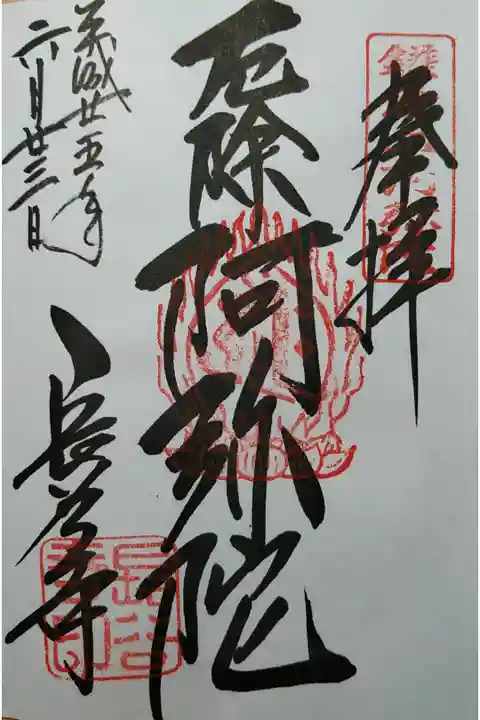 奉拝
厄除阿弥陀
長谷寺
平成廿五年
六月廿三日
長谷寺印